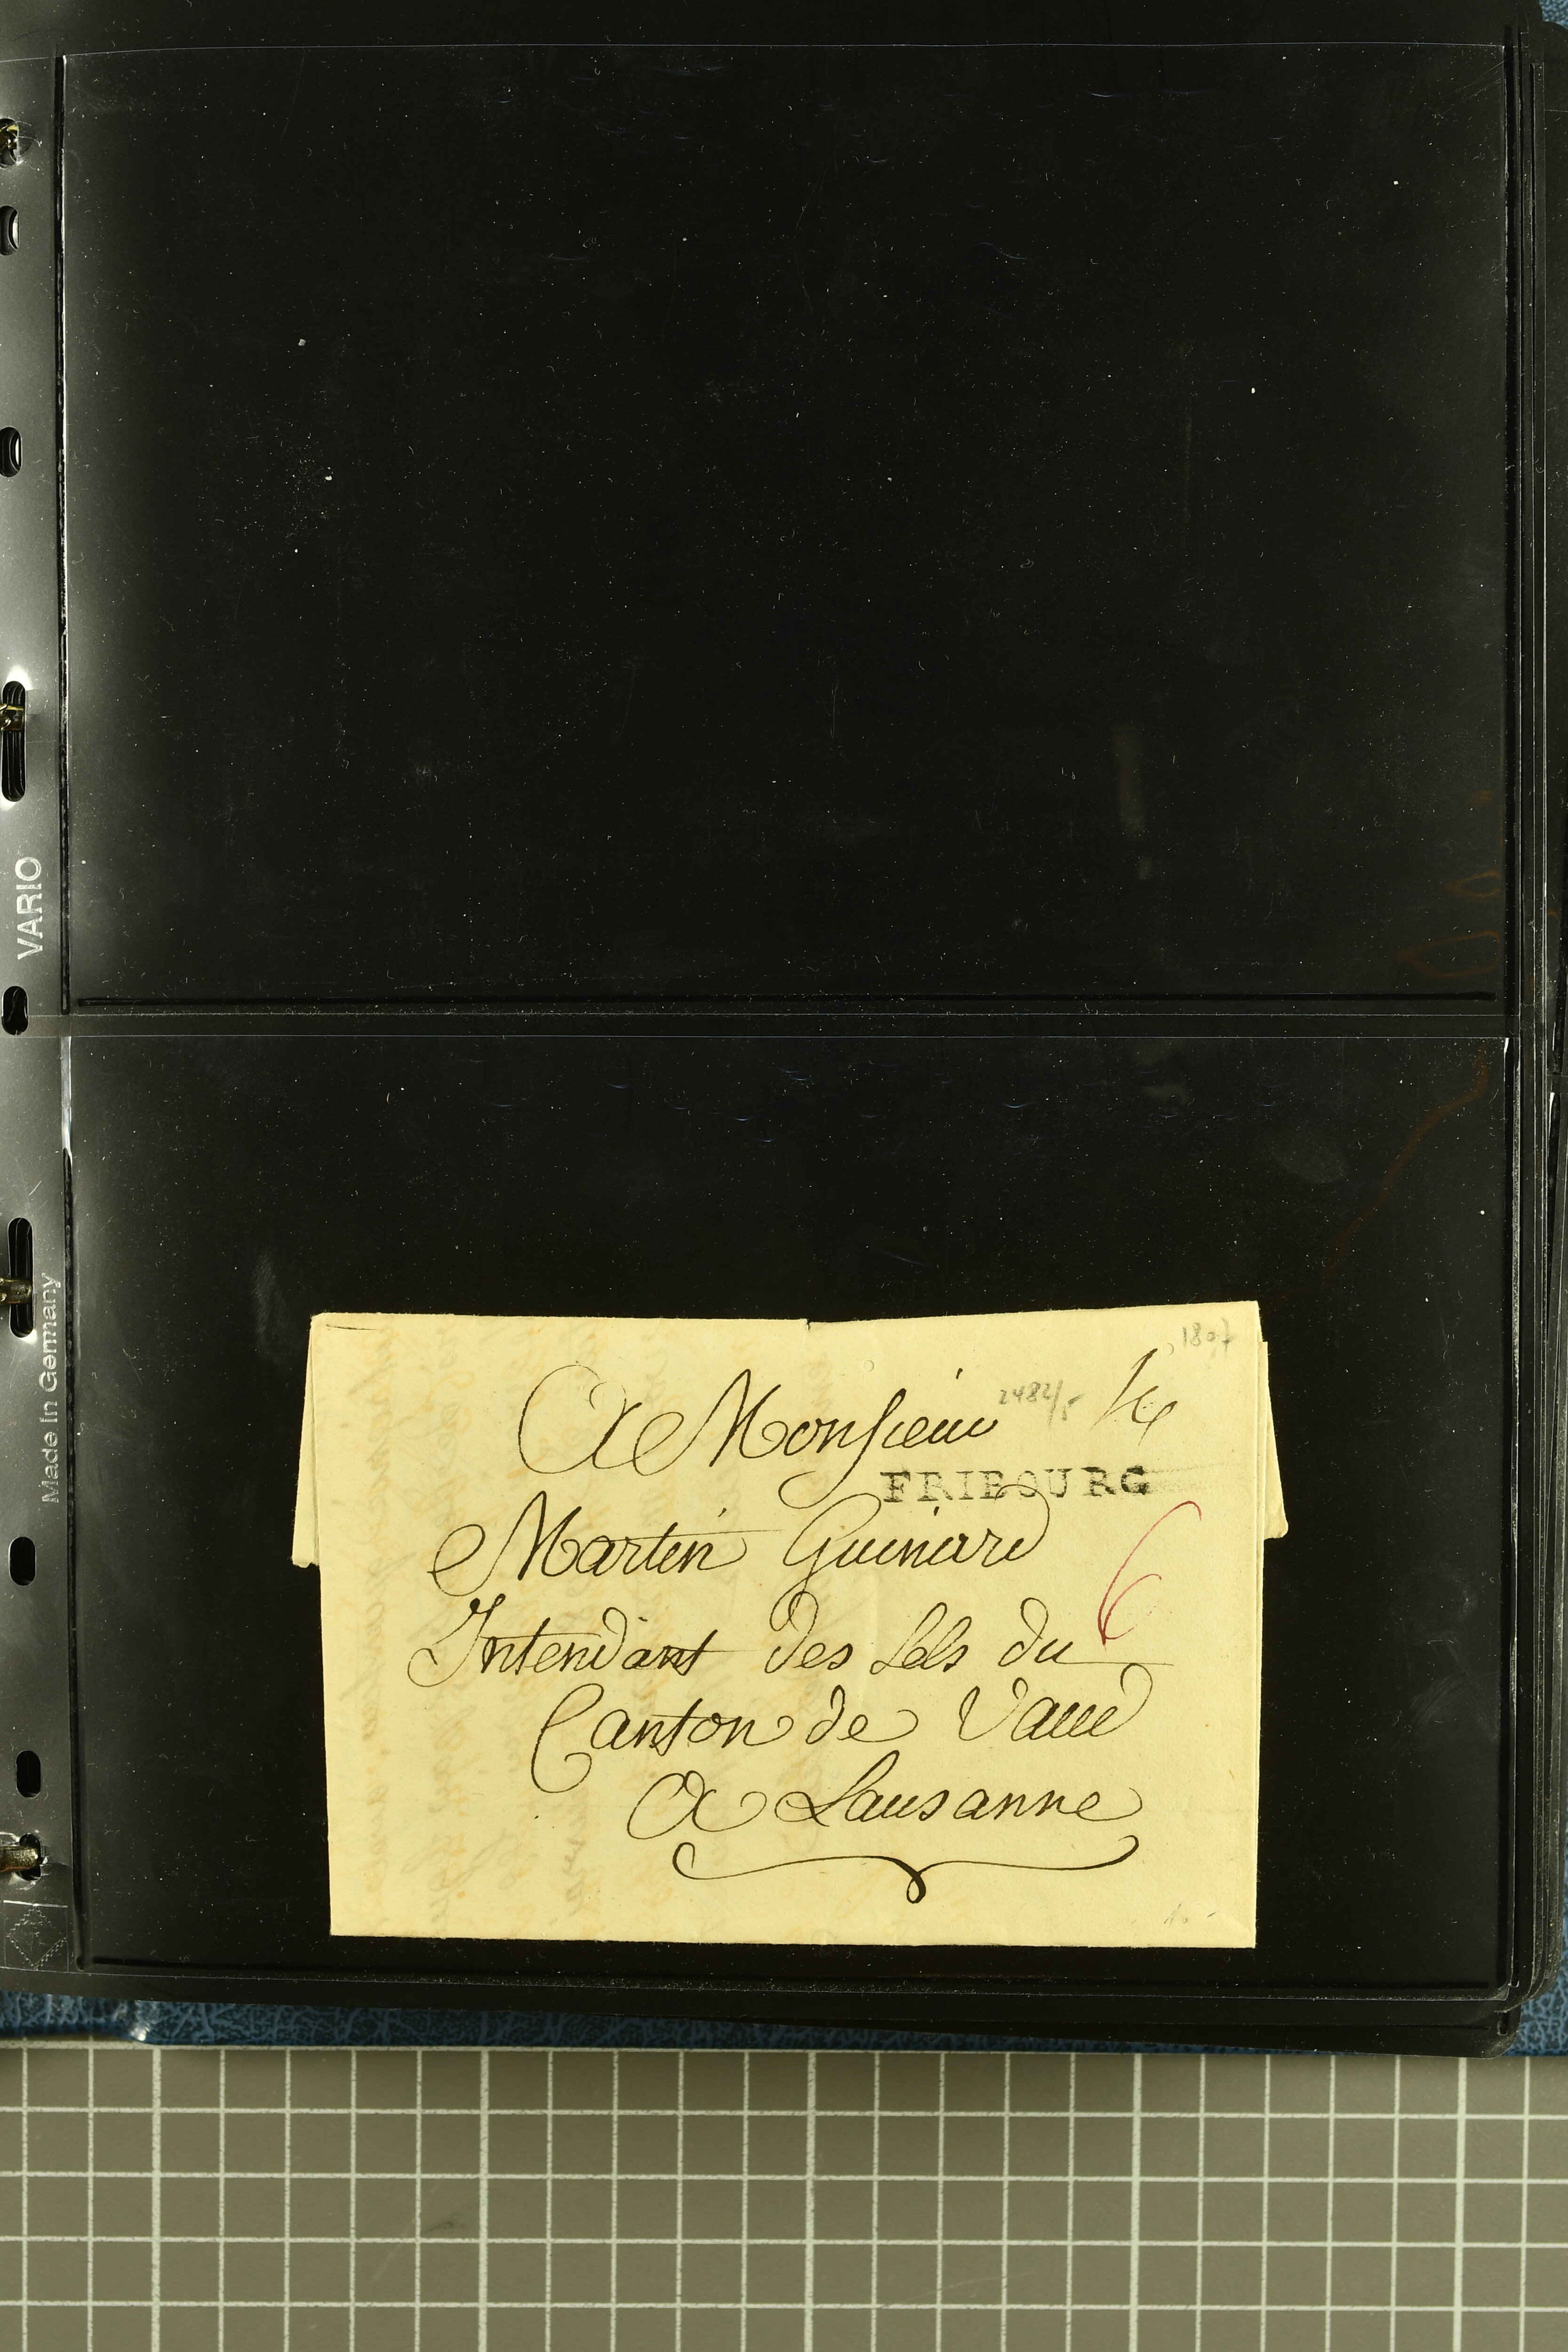 VARIO
Made in Germany
1807
A Monsieur
2482/5
FRIBOURG
Martin Guinard
6
Intendant des Sels du
Canton de Vaud
A Lausanne